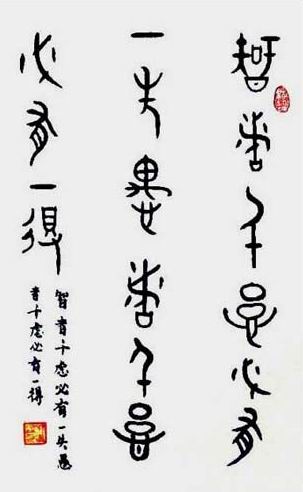 智者千慮必有
一失愚者千慮
必有一得
智者千虑必有一失愚
者千虑必有一得